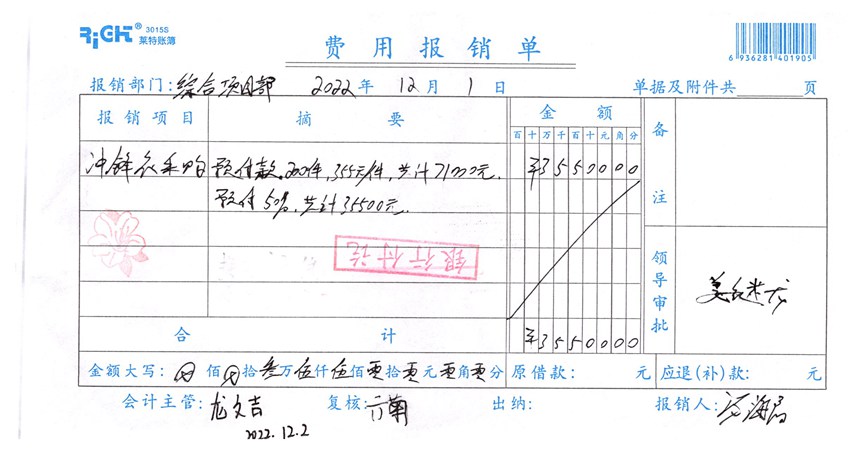 RiGHT® 3015S
莱特账簿
费用报销单
6 936281 401905
报销部门:综合项目部 2022年 12月 1日 单据及附件共 页
报销项目 摘要 金额 备注
百十万千百十元角分
冲锋衣采购 预付款。200件,355元/件,共计71000元. ¥3550000
预付50%,共计35500元.
银行付讫
领导审批
合计 ¥3550000
金额大写: 佰 拾叁万伍仟伍佰零拾零元零角零分 原借款: 元 应退(补)款: 元
会计主管:龙文吉 复核: 出纳: 报销人:
2022.12.2